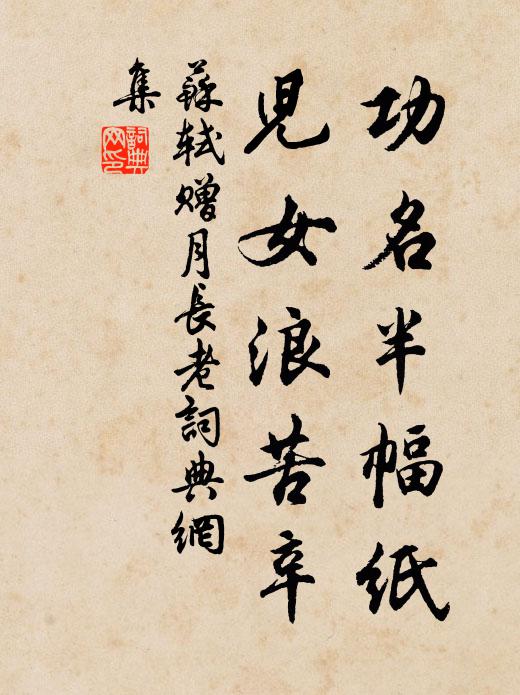 功名半幅紙
兒女浪苦辛
蘇軾贈月長老詞典網
集
詞典
网印